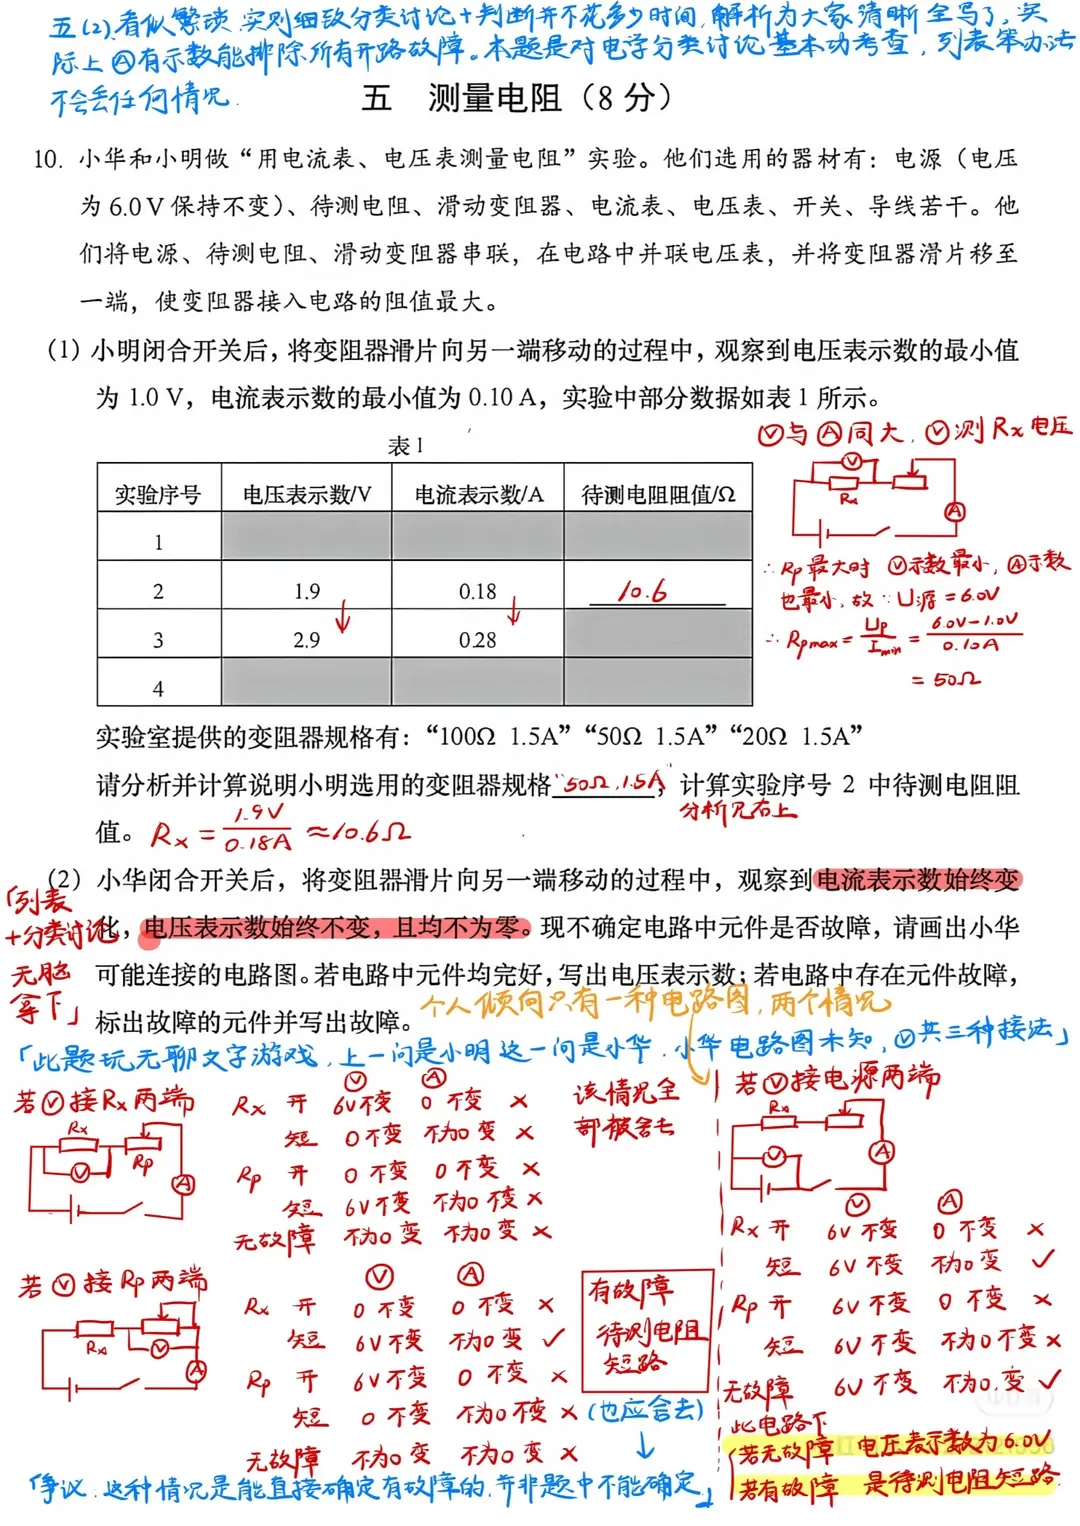 五(2)看似繁琐,实则细致分类讨论+判断并不花多少时间,解析为大家清晰全写了,实
际上Ⓐ有示数能排除所有开路故障。本题是对电学分类讨论基本功考查,列表笨办法
不会丢任何情况.
五 测量电阻（8 分）
10. 小华和小明做“用电流表、电压表测量电阻”实验。他们选用的器材有：电源（电压
为 6.0 V 保持不变）、待测电阻、滑动变阻器、电流表、电压表、开关、导线若干。他
们将电源、待测电阻、滑动变阻器串联，在电路中并联电压表，并将变阻器滑片移至
一端，使变阻器接入电路的阻值最大。
（1）小明闭合开关后，将变阻器滑片向另一端移动的过程中，观察到电压表示数的最小值
为 1.0 V，电流表示数的最小值为 0.10 A，实验中部分数据如表 1 所示。
Ⓥ与Ⓐ同大,Ⓥ测Rx电压
表 1
实验序号 电压表示数/V 电流表示数/A 待测电阻阻值/Ω
1
2 1.9 0.18 10.6
3 2.9 0.28
4
V
Rx
A
∴Rp最大时 Ⓥ示数最小,Ⓐ示数
也最小,故∵U源=6.0V
∴Rpmax=Up/Imin=(6.0V-1.0V)/0.10A
=50Ω
实验室提供的变阻器规格有：“100Ω 1.5A”“50Ω 1.5A”“20Ω 1.5A”
请分析并计算说明小明选用的变阻器规格“50Ω,1.5A”，计算实验序号 2 中待测电阻阻
分析见右上
值。 Rx=1.9V/0.18A≈10.6Ω
（2）小华闭合开关后，将变阻器滑片向另一端移动的过程中，观察到电流表示数始终变
化，电压表示数始终不变，且均不为零。现不确定电路中元件是否故障，请画出小华
可能连接的电路图。若电路中元件均完好，写出电压表示数；若电路中存在元件故障，
标出故障的元件并写出故障。
「列表
+分类讨论
无脑
拿下」
个人倾向只有一种电路图,两个情况
「此题玩无聊文字游戏,上一问是小明这一问是小华,小华电路图未知,Ⓥ共三种接法」
若Ⓥ接Rx两端
Rx
Rp
V
A
Ⓥ Ⓐ
Rx 开 6V不变 0不变 ×
短 0不变 不为0变 ×
Rp 开 0不变 0不变 ×
短 6V不变 不为0不变 ×
无故障 不为0变 不为0变 ×
该情况全
部被舍去
若Ⓥ接Rp两端
Rx
V
A
Ⓥ Ⓐ
Rx 开 0不变 0不变 ×
短 6V不变 不为0变 ✓
Rp 开 6V不变 0不变 ×
短 0不变 不为0不变 ×
无故障 不为0变 不为0变 ×
有故障
待测电阻
短路
(也应舍去)
「争议:这种情况是能直接确定有故障的,并非题中不能确定」
若Ⓥ接电源两端
Rx
V
A
Ⓥ Ⓐ
Rx 开 6V不变 0不变 ×
短 6V不变 不为0变 ✓
Rp 开 6V不变 0不变 ×
短 6V不变 不为0不变 ×
无故障 6V不变 不为0,变 ✓
此电路下
若无故障 电压表示数为6.0V
若有故障 是待测电阻短路